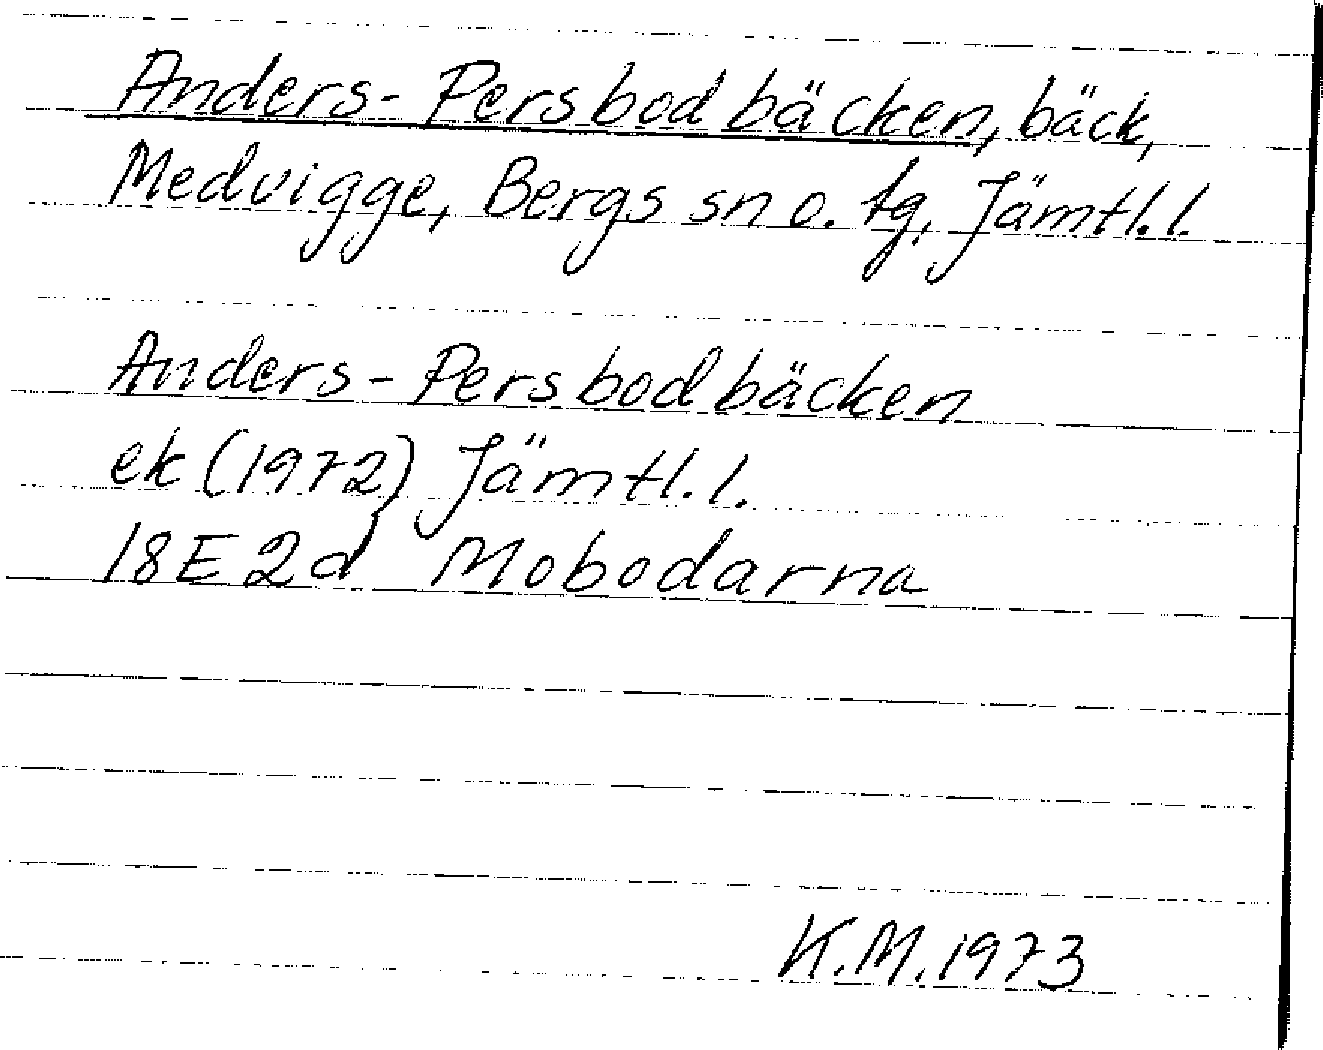 Anders-Persbodbäcken, bäck,
Medvigge, Bergs sn o. tg, Jämtl. l.
Anders-Persbodbäcken
ek (1972) Jämtl. l.
18E 2d Mobodarna
K.M. 1973